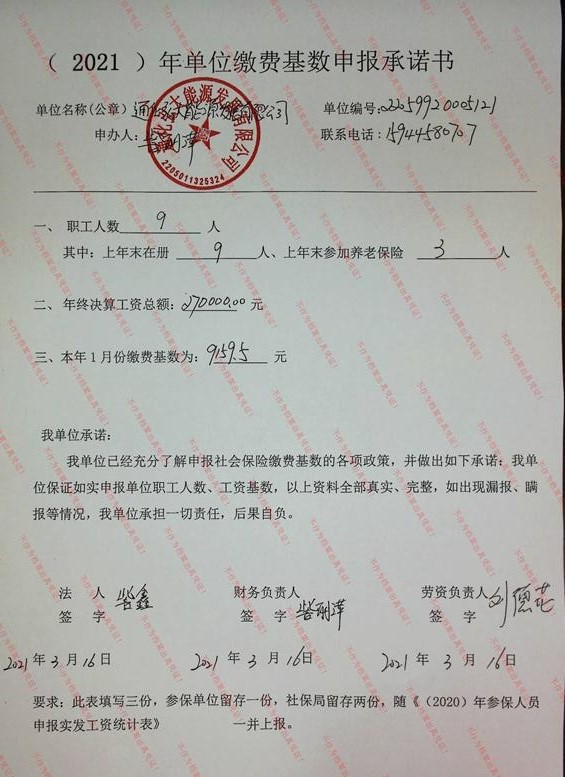 （ 2021 ）年单位缴费基数申报承诺书
单位名称(公章) 单位编号:22059920005121
申办人: 联系电话:15944580707
2205011325324
一、 职工人数 9 人
其中：上年末在册 9 人、上年末参加养老保险 3 人
二、 年终决算工资总额：270000.00 元
三、本年1月份缴费基数为：9159.5 元
我单位承诺：
我单位已经充分了解申报社会保险缴费基数的各项政策，并做出如下承诺：我单
位保证如实申报单位职工人数、工资基数，以上资料全部真实、完整，如出现漏报、瞒
报等情况，我单位承担一切责任，后果自负。
法 人 财务负责人 劳资负责人
签 字 签 字 签 字
2021年3月16日 2021年3月16日 2021年3月16日
要求：此表填写三份，参保单位留存一份，社保局留存两份，随《（2020）年参保人员
申报实发工资统计表》 一并上报。